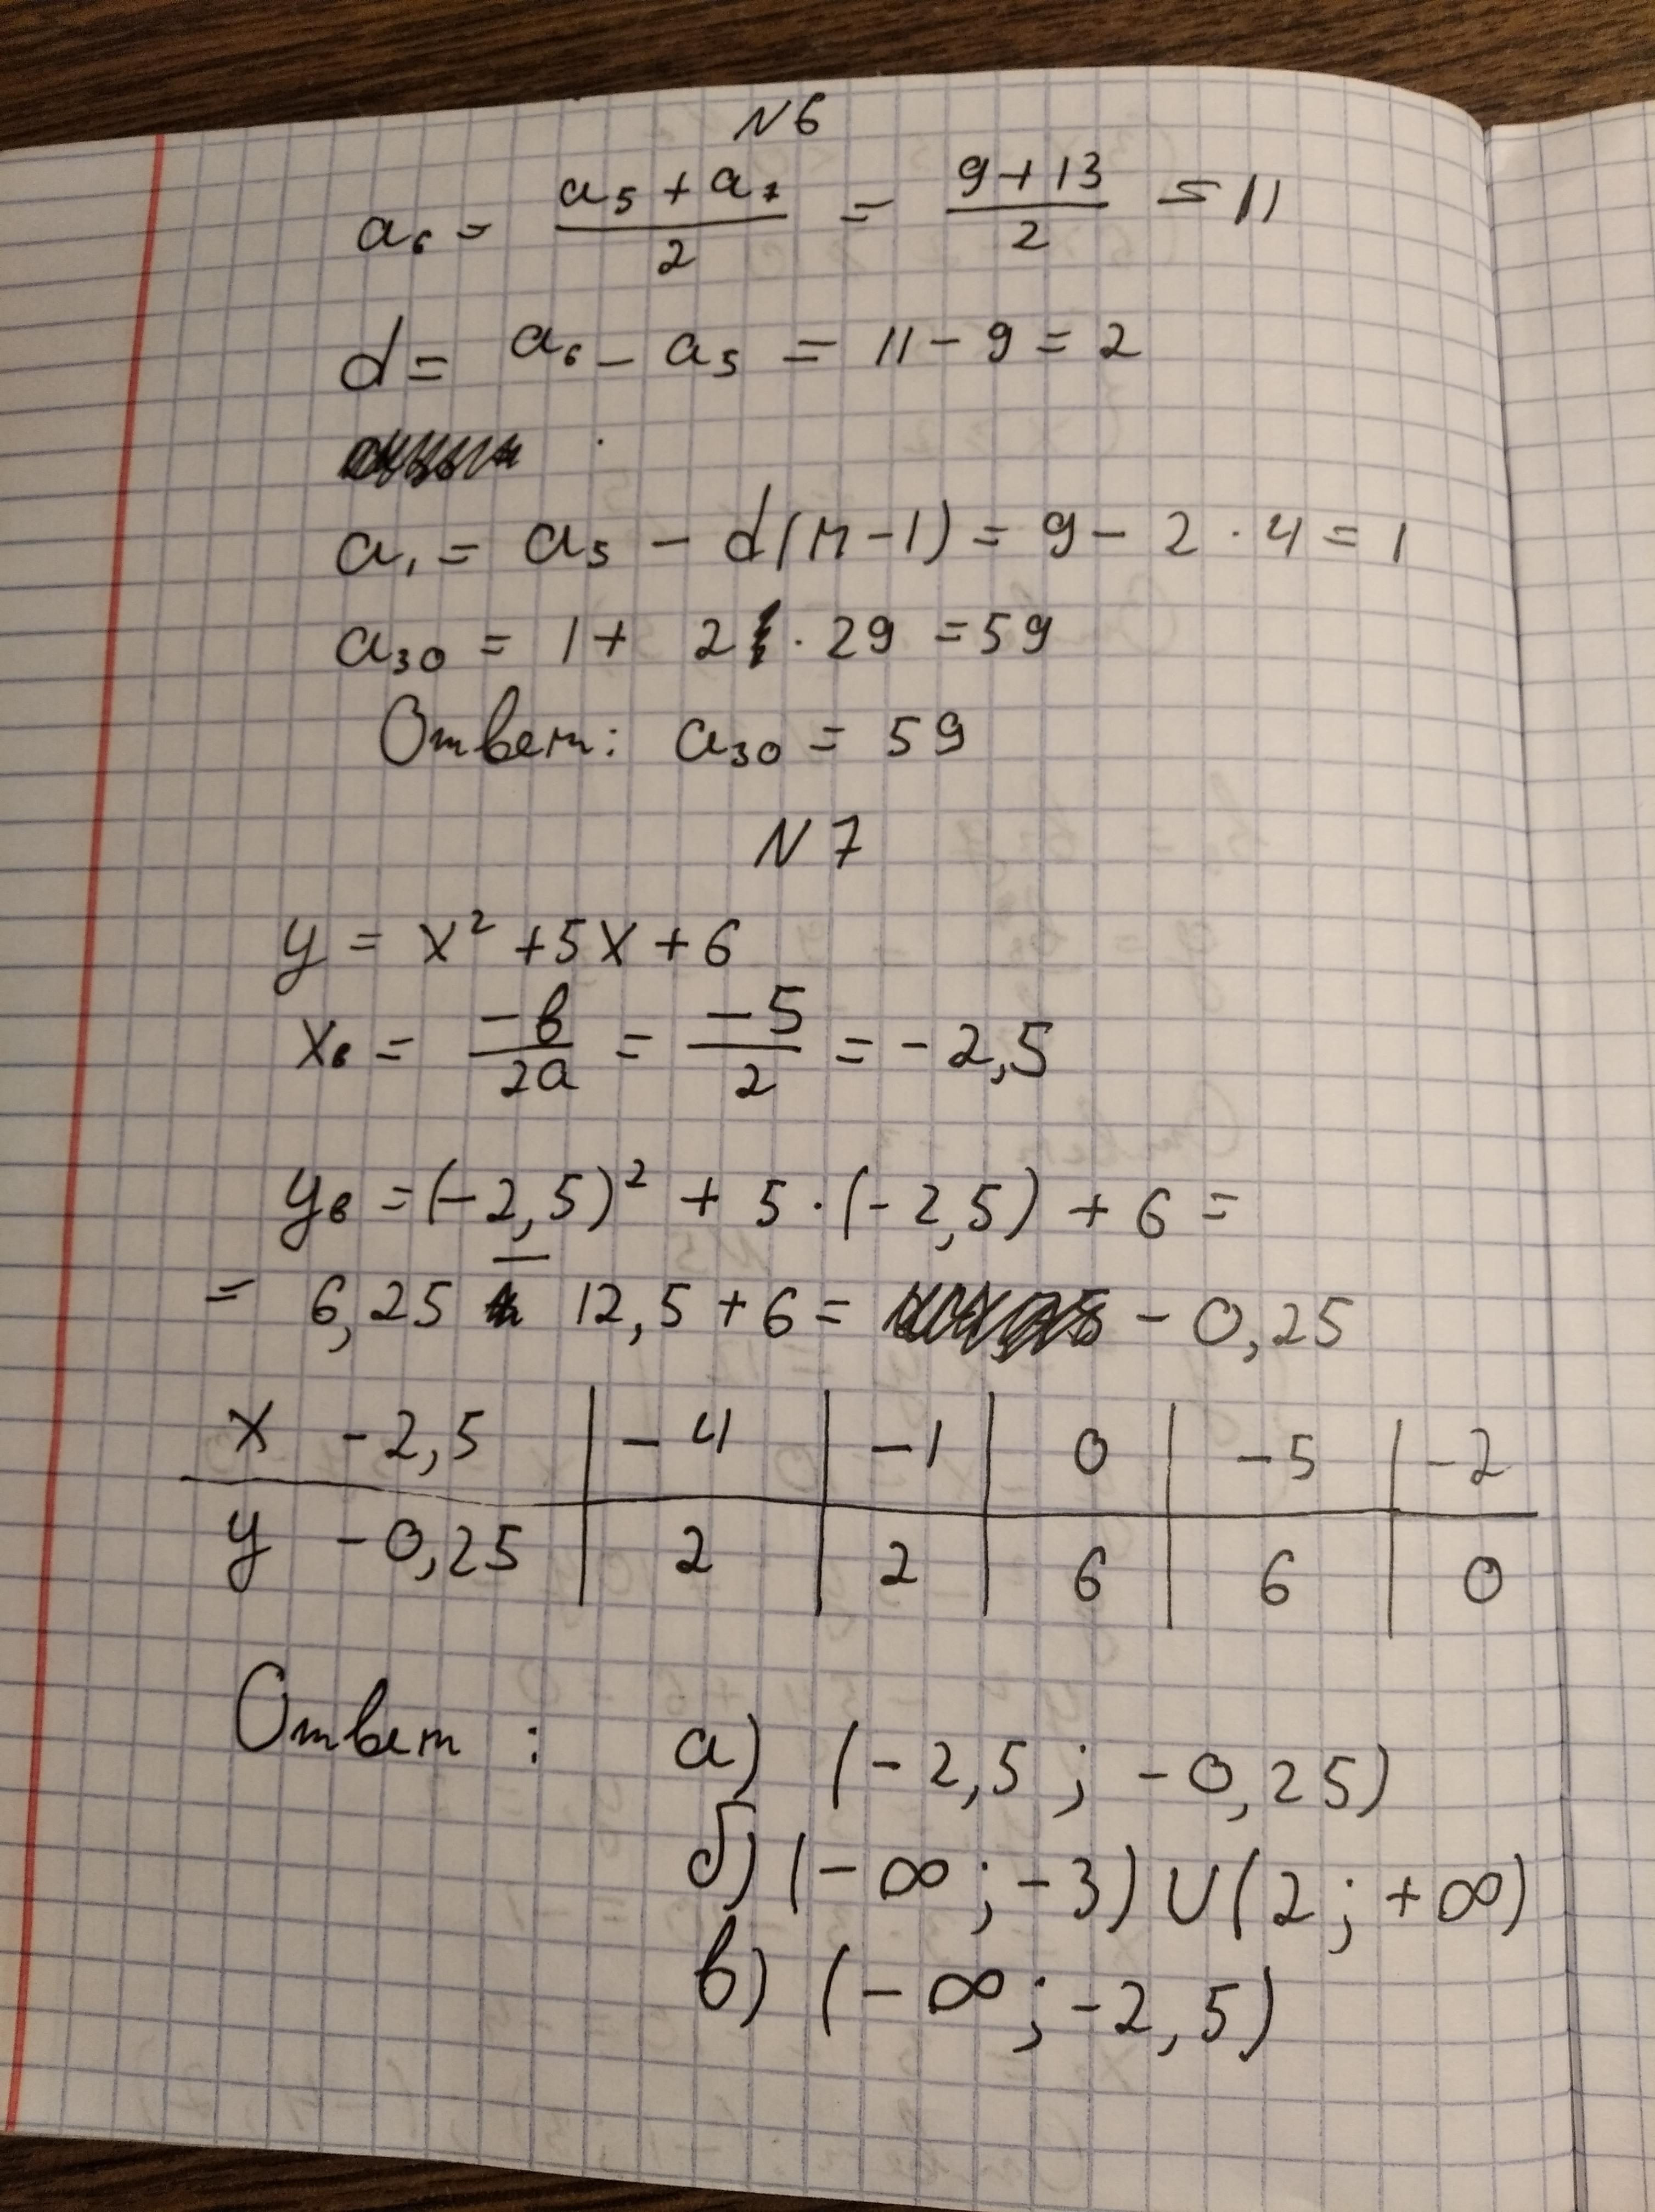 N6
a₆ = (a₅ + a₇)/2 = (9 + 13)/2 = 11
d = a₆ - a₅ = 11 - 9 = 2
a₁ = a₅ - d(n - 1) = 9 - 2 · 4 = 1
a₃₀ = 1 + 2 · 29 = 59
Ответ: a₃₀ = 59
N7
y = x² + 5x + 6
xв = -b/2a = -5/2 = -2,5
yв = (-2,5)² + 5 · (-2,5) + 6 =
= 6,25 - 12,5 + 6 = -0,25
x -2,5 | -4 | -1 | 0 | -5 | -2
y -0,25 | 2 | 2 | 6 | 6 | 0
Ответ: а) (-2,5; -0,25)
б) (-∞; -3) ∪ (2; +∞)
в) (-∞; -2,5)